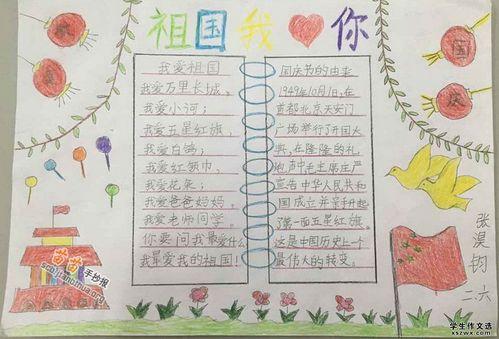 祖国我你
欢
度
国
庆
我爱祖国
我爱万里长城。
我爱小河；
我爱五星红旗，
我爱白鸽；
我爱红领巾，
我爱花朵；
我爱爸爸妈妈。
我爱老师同学。
你要问我最爱什么
我最爱我的祖国！
国庆节的由来
1949年10月1日,在
首都北京天安门
广场举行了开国大
典,在隆隆的礼
炮声中毛主席庄严
宣告中华人民共和
国成立并亲手升起
了第一面五星红旗。
这是中国历史上一个
最伟大的转变。
张淏钧
二.六
苗苗手抄报
scojianghua.org
学生作文选
xszwx.com